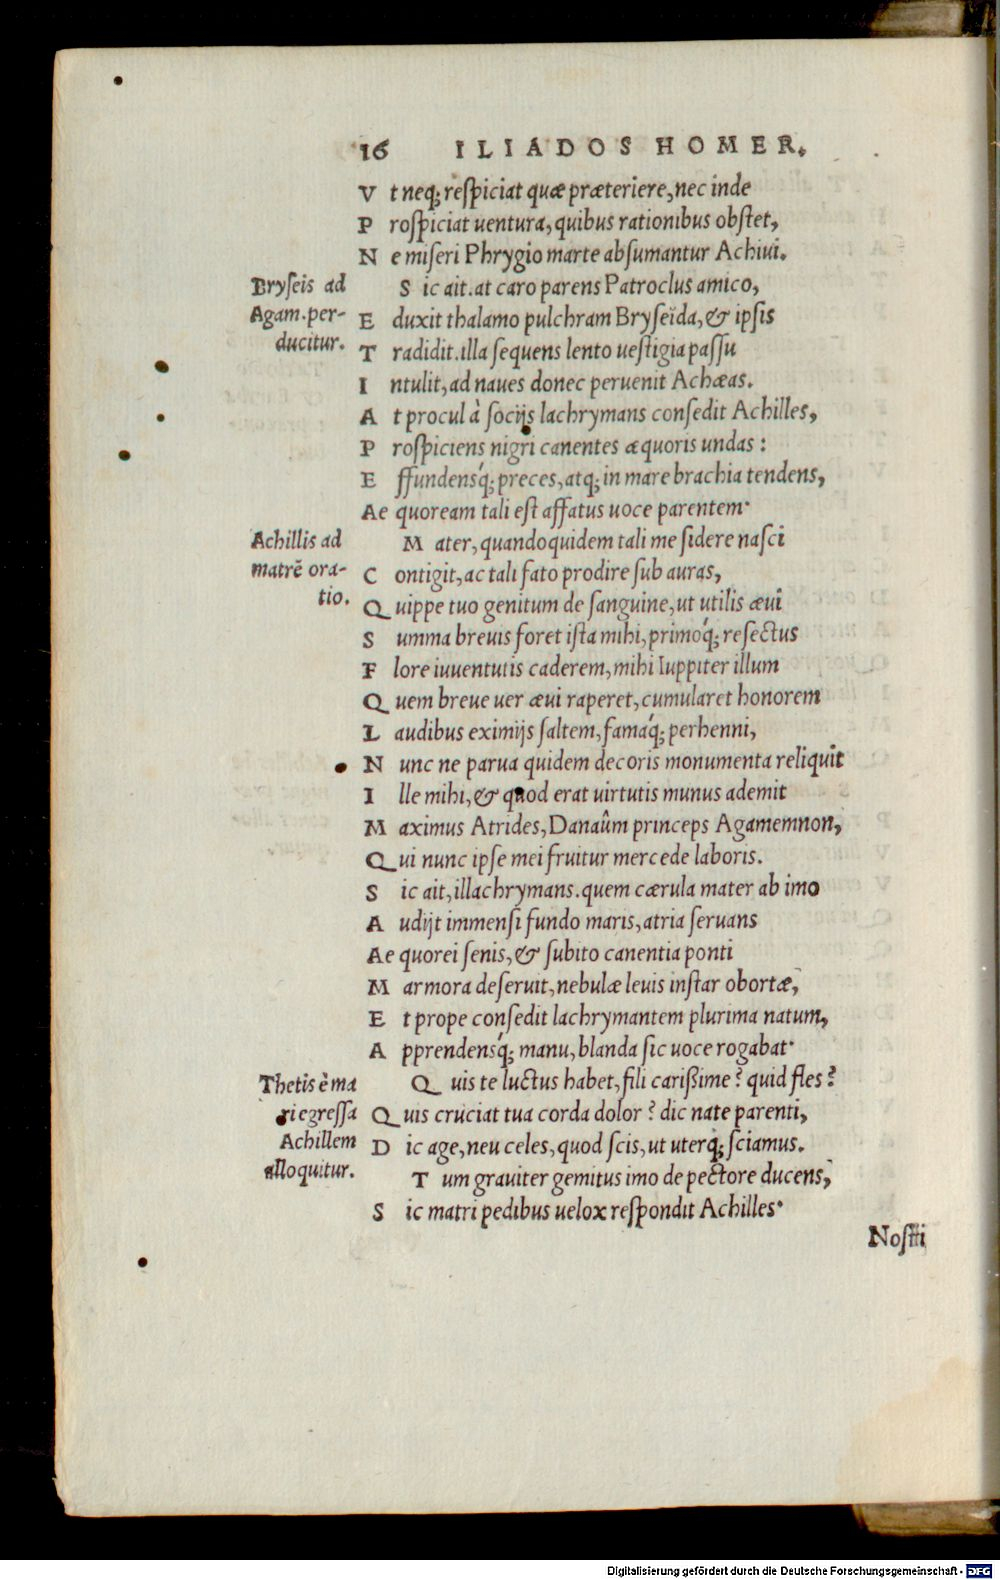 16 ILIADOS HOMER.
Vt neq; respiciat quæ præteriere, nec inde
Prospiciat uentura, quibus rationibus obstet,
Ne miseri Phrygio marte absumantur Achiui.
Bryseis ad
Agam. per-
ducitur.
Sic ait. at caro parens Patroclus amico,
Eduxit thalamo pulchram Bryseïda, & ipsis
Tradidit. illa sequens lento uestigia passu
Intulit, ad naues donec peruenit Achæas.
At procul à socijs lachrymans consedit Achilles,
Prospiciens nigri canentes æquoris undas:
Effundensq́; preces, atq; in mare brachia tendens,
Aequoream tali est affatus uoce parentem·
Achillis ad
matrē ora-
tio.
Mater, quandoquidem tali me sidere nasci
Contigit, ac tali fato prodire sub auras,
Quippe tuo genitum de sanguine, ut utilis æui
Summa breuis foret ista mihi, primoq́; resectus
Flore iuuentutis caderem, mihi Iuppiter illum
Quem breue uer æui raperet, cumularet honorem
Laudibus eximijs saltem, famaq́; perhenni,
Nunc ne parua quidem decoris monumenta reliquit
Ille mihi, & quod erat uirtutis munus ademit
Maximus Atrides, Danaûm princeps Agamemnon,
Qui nunc ipse mei fruitur mercede laboris.
Sic ait, illachrymans. quem cærula mater ab imo
Audijt immensi fundo maris, atria seruans
Aequorei senis, & subito canentia ponti
Marmora deseruit, nebulæ leuis instar obortæ,
Et prope consedit lachrymantem plurima natum,
Apprendensq́; manu, blanda sic uoce rogabat·
Thetis è ma
ri egressa
Achillem
alloquitur.
Quis te luctus habet, fili carißime? quid fles?
Quis cruciat tua corda dolor? dic nate parenti,
Dic age, neu celes, quod scis, ut uterq; sciamus.
Tum grauiter gemitus imo de pectore ducens,
Sic matri pedibus uelox respondit Achilles·
Nosti
Digitalisierung gefördert durch die Deutsche Forschungsgemeinschaft - DFG